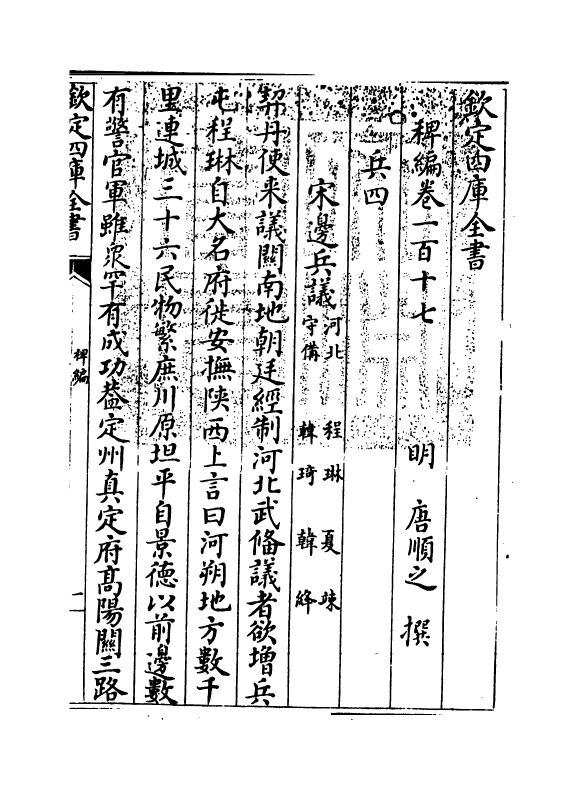 欽定四庫全書
稗編卷一百十七　　明　唐順之　撰
兵四
宋邊兵議河北守備　程琳　夏竦　韓琦　韓絳
契丹使来議關南地朝廷經制河北武備議者欲增兵
屯程琳自大名府徙安撫陜西上言曰河朔地方數千
里連城三十六民物繁庶川原坦平自景德以前邊數
有警官軍雖衆罕有成功葢定州真定府髙陽關三路
欽定四庫全書
稗編